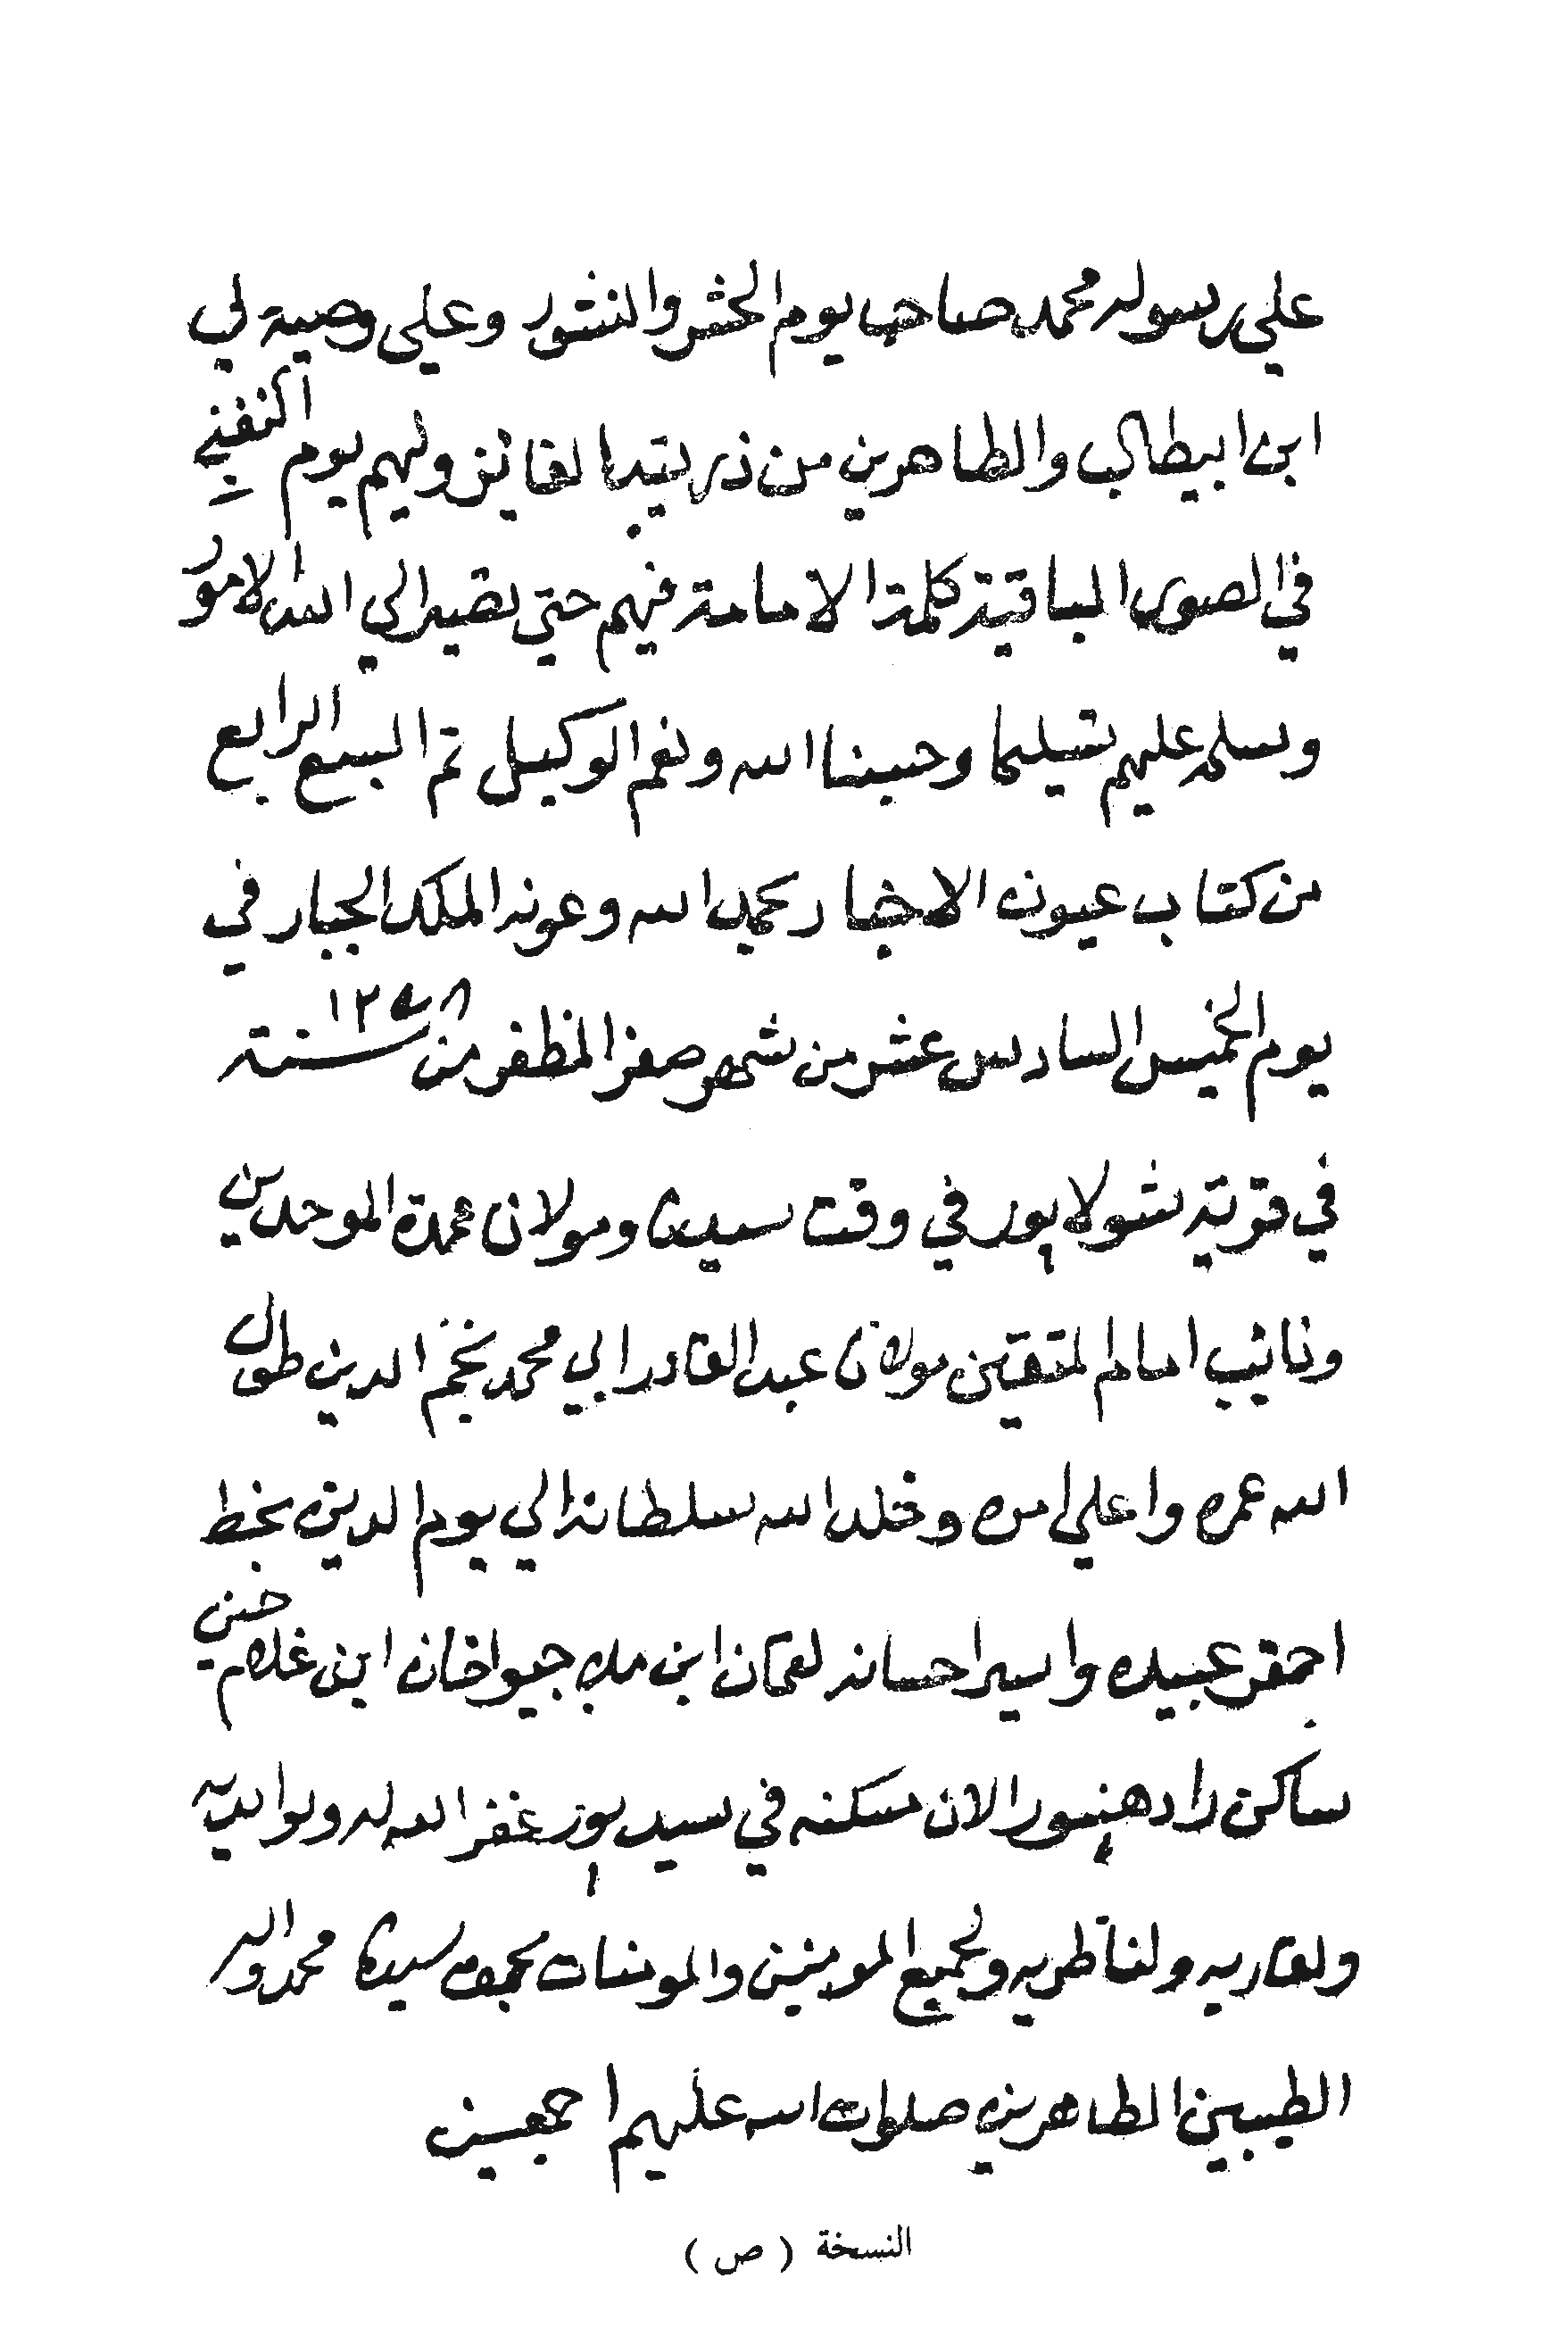 علي رسوله محمد صاحب يوم الحشر والنشور وعلى وصيه لي
ابن ابيطالب والطاهرين من ذريته الفائز وليهم يوم النفخ
في الصور الباقية كلمة الامامة فيهم حتي تصير الي الله الامور
وسلم عليهم تسليما وحسبنا الله ونعم الوكيل تم السبع الرابع
من كتاب عيون الاخبار بحمد الله وعونه الملك الجبار في
يوم الخميس السادس عشر من شهر صفر المظفر من سنة ١٢٧٨
في قرية شولاپور في وقت سيدنا ومولانا عمدة الموحدين
ونائب امام المتقين مولانا عبد القادر ابي محمد نجم الدين طول
الله عمره واعلي امره وخلد الله سلطانه الي يوم الدين بخط
احقر عبيده واسير احسانه لقمان ابن ملا جيواخان ابن غلام حسين
ساكن رادهنپور الان مسكنه في سيدپور غفر الله له ولوالديه
ولقاريه ولناظريه ولجميع المومنين والمومنات بحق سيدنا محمد واله
الطيبين الطاهرين صلوات الله عليهم اجمعين
النسخة ( ص )